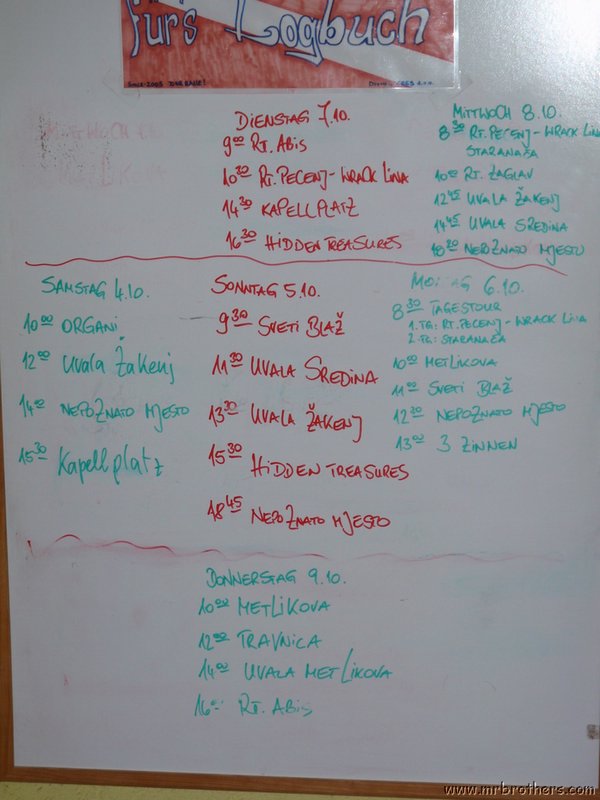 fürs Logbuch
DIENSTAG 7.10.
9⁰⁰ RT. ABIS
10³⁰ RT. PECENJ - WRACK LINA
14³⁰ KAPELLPLATZ
16³⁰ HIDDEN TREASURES
MITTWOCH 8.10.
8³⁰ RT. PECENJ - WRACK LINA
STARANAČA
10⁰⁰ RT. ZAGLAV
12⁴⁵ UVALA ŽAKENJ
14⁴⁵ UVALA SREDINA
NEPOZNATO MJESTO
SAMSTAG 4.10.
10⁰⁰ ORGANI
12⁰⁰ Uvala Žakenj
14⁰⁰ NEPOZNATO MJESTO
15³⁰ Kapellplatz
SONNTAG 5.10.
9³⁰ SVETI BLAŽ
11³⁰ UVALA SREDINA
13³⁰ UVALA ŽAKENJ
15³⁰ HIDDEN TREASURES
18⁴⁵ NEPOZNATO MJESTO
MO TAG 6.10.
8³⁰ TAGESTOUR
1. TG: RT. PECENJ - WRACK LINA
2. TG: STARANAČA
10⁰⁰ METLIKOVA
11⁰⁰ SVETI BLAŽ
12³⁰ NEPOZNATO MJESTO
13⁰⁰ 3 ZINNEN
DONNERSTAG 9.10.
10⁰⁰ METLIKOVA
12⁰⁰ TRAVNICA
14⁰⁰ UVALA METLIKOVA
16⁰⁰ RT. ABIS
www.mrbrothers.com